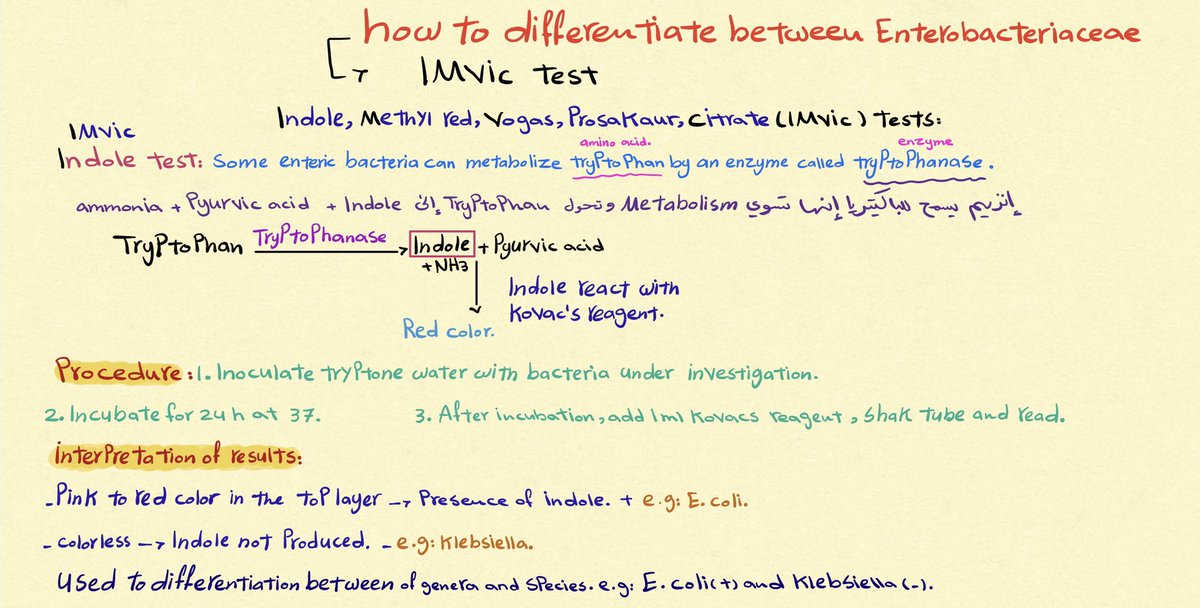 how to differentiate between Enterobacteriaceae
IMVic test
Indole, Methyl red, Vogas, Prosakaur, Citrate (IMVic) Tests:
IMVic
amino acid. enzyme
Indole test: Some enteric bacteria can metabolize tryptophan by an enzyme called tryptophanase.
إنزيم يسمح للباكتيريا إنها تسوي Metabolism وتحول Tryptophan إلى ammonia + Pyurvic acid + Indole
Tryptophan Tryptophanase Indole + Pyurvic acid
+NH3
Indole react with
Kovac's reagent.
Red color.
Procedure: 1. Inoculate tryptone water with bacteria under investigation.
2. Incubate for 24 h at 37. 3. After incubation, add 1ml Kovacs reagent, shak tube and read.
interpretation of results:
- Pink to red color in the top layer → Presence of indole. + e.g: E. coli.
- colorless → Indole not Produced. - e.g: Klebsiella.
Used to differentiation between of genera and species. e.g: E. coli (+) and Klebsiella (-).